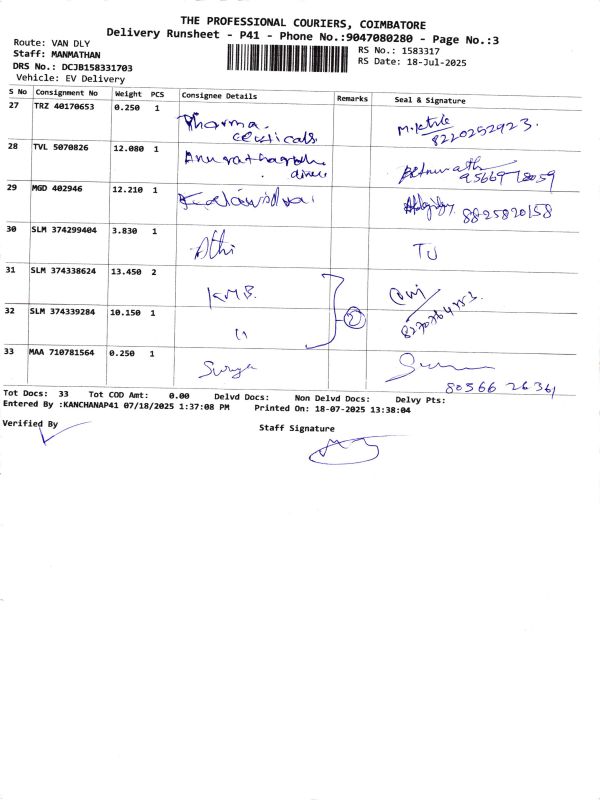 THE PROFESSIONAL COURIERS, COIMBATORE
Delivery Runsheet - P41 - Phone No.:9047080280 - Page No.:3
Route: VAN DLY
Staff: MANMATHAN
DRS No.: DCJB158331703
Vehicle: EV Delivery
RS No.: 1583317
RS Date: 18-Jul-2025
S No Consignment No Weight PCS Consignee Details Remarks Seal & Signature
27 TRZ 40170653 0.250 1 Pharma. ceuticals
8220252923.
28 TVL 5070826 12.080 1
9566978059
29 MGD 402946 12.210 1
8825820158
30 SLM 374299404 3.830 1 Athi
31 SLM 374338624 13.450 2 KMB.
32 SLM 374339284 10.150 1 "
2
33 MAA 710781564 0.250 1 Surya
80566 26361
Tot Docs: 33 Tot COD Amt: 0.00 Delvd Docs: Non Delvd Docs: Delvy Pts:
Entered By :KANCHANAP41 07/18/2025 1:37:08 PM Printed On: 18-07-2025 13:38:04
Verified By
Staff Signature